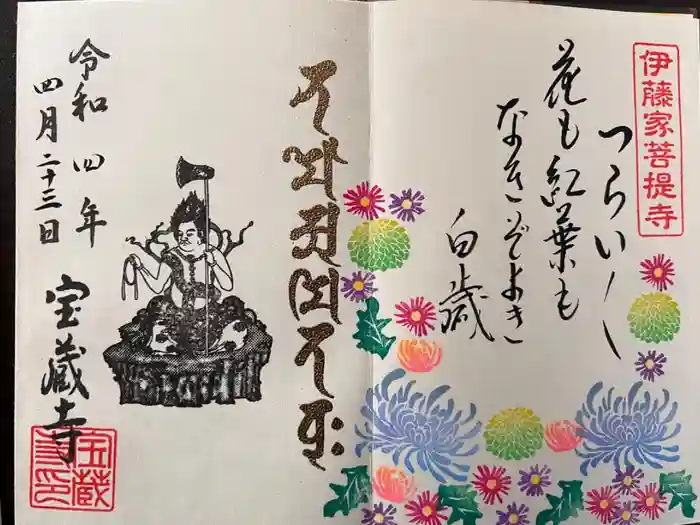 伊藤家菩提寺
つらい
花も紅葉も
なきぞよき
白歳
令和四年
四月二十三日
宝蔵寺
宝蔵寺印